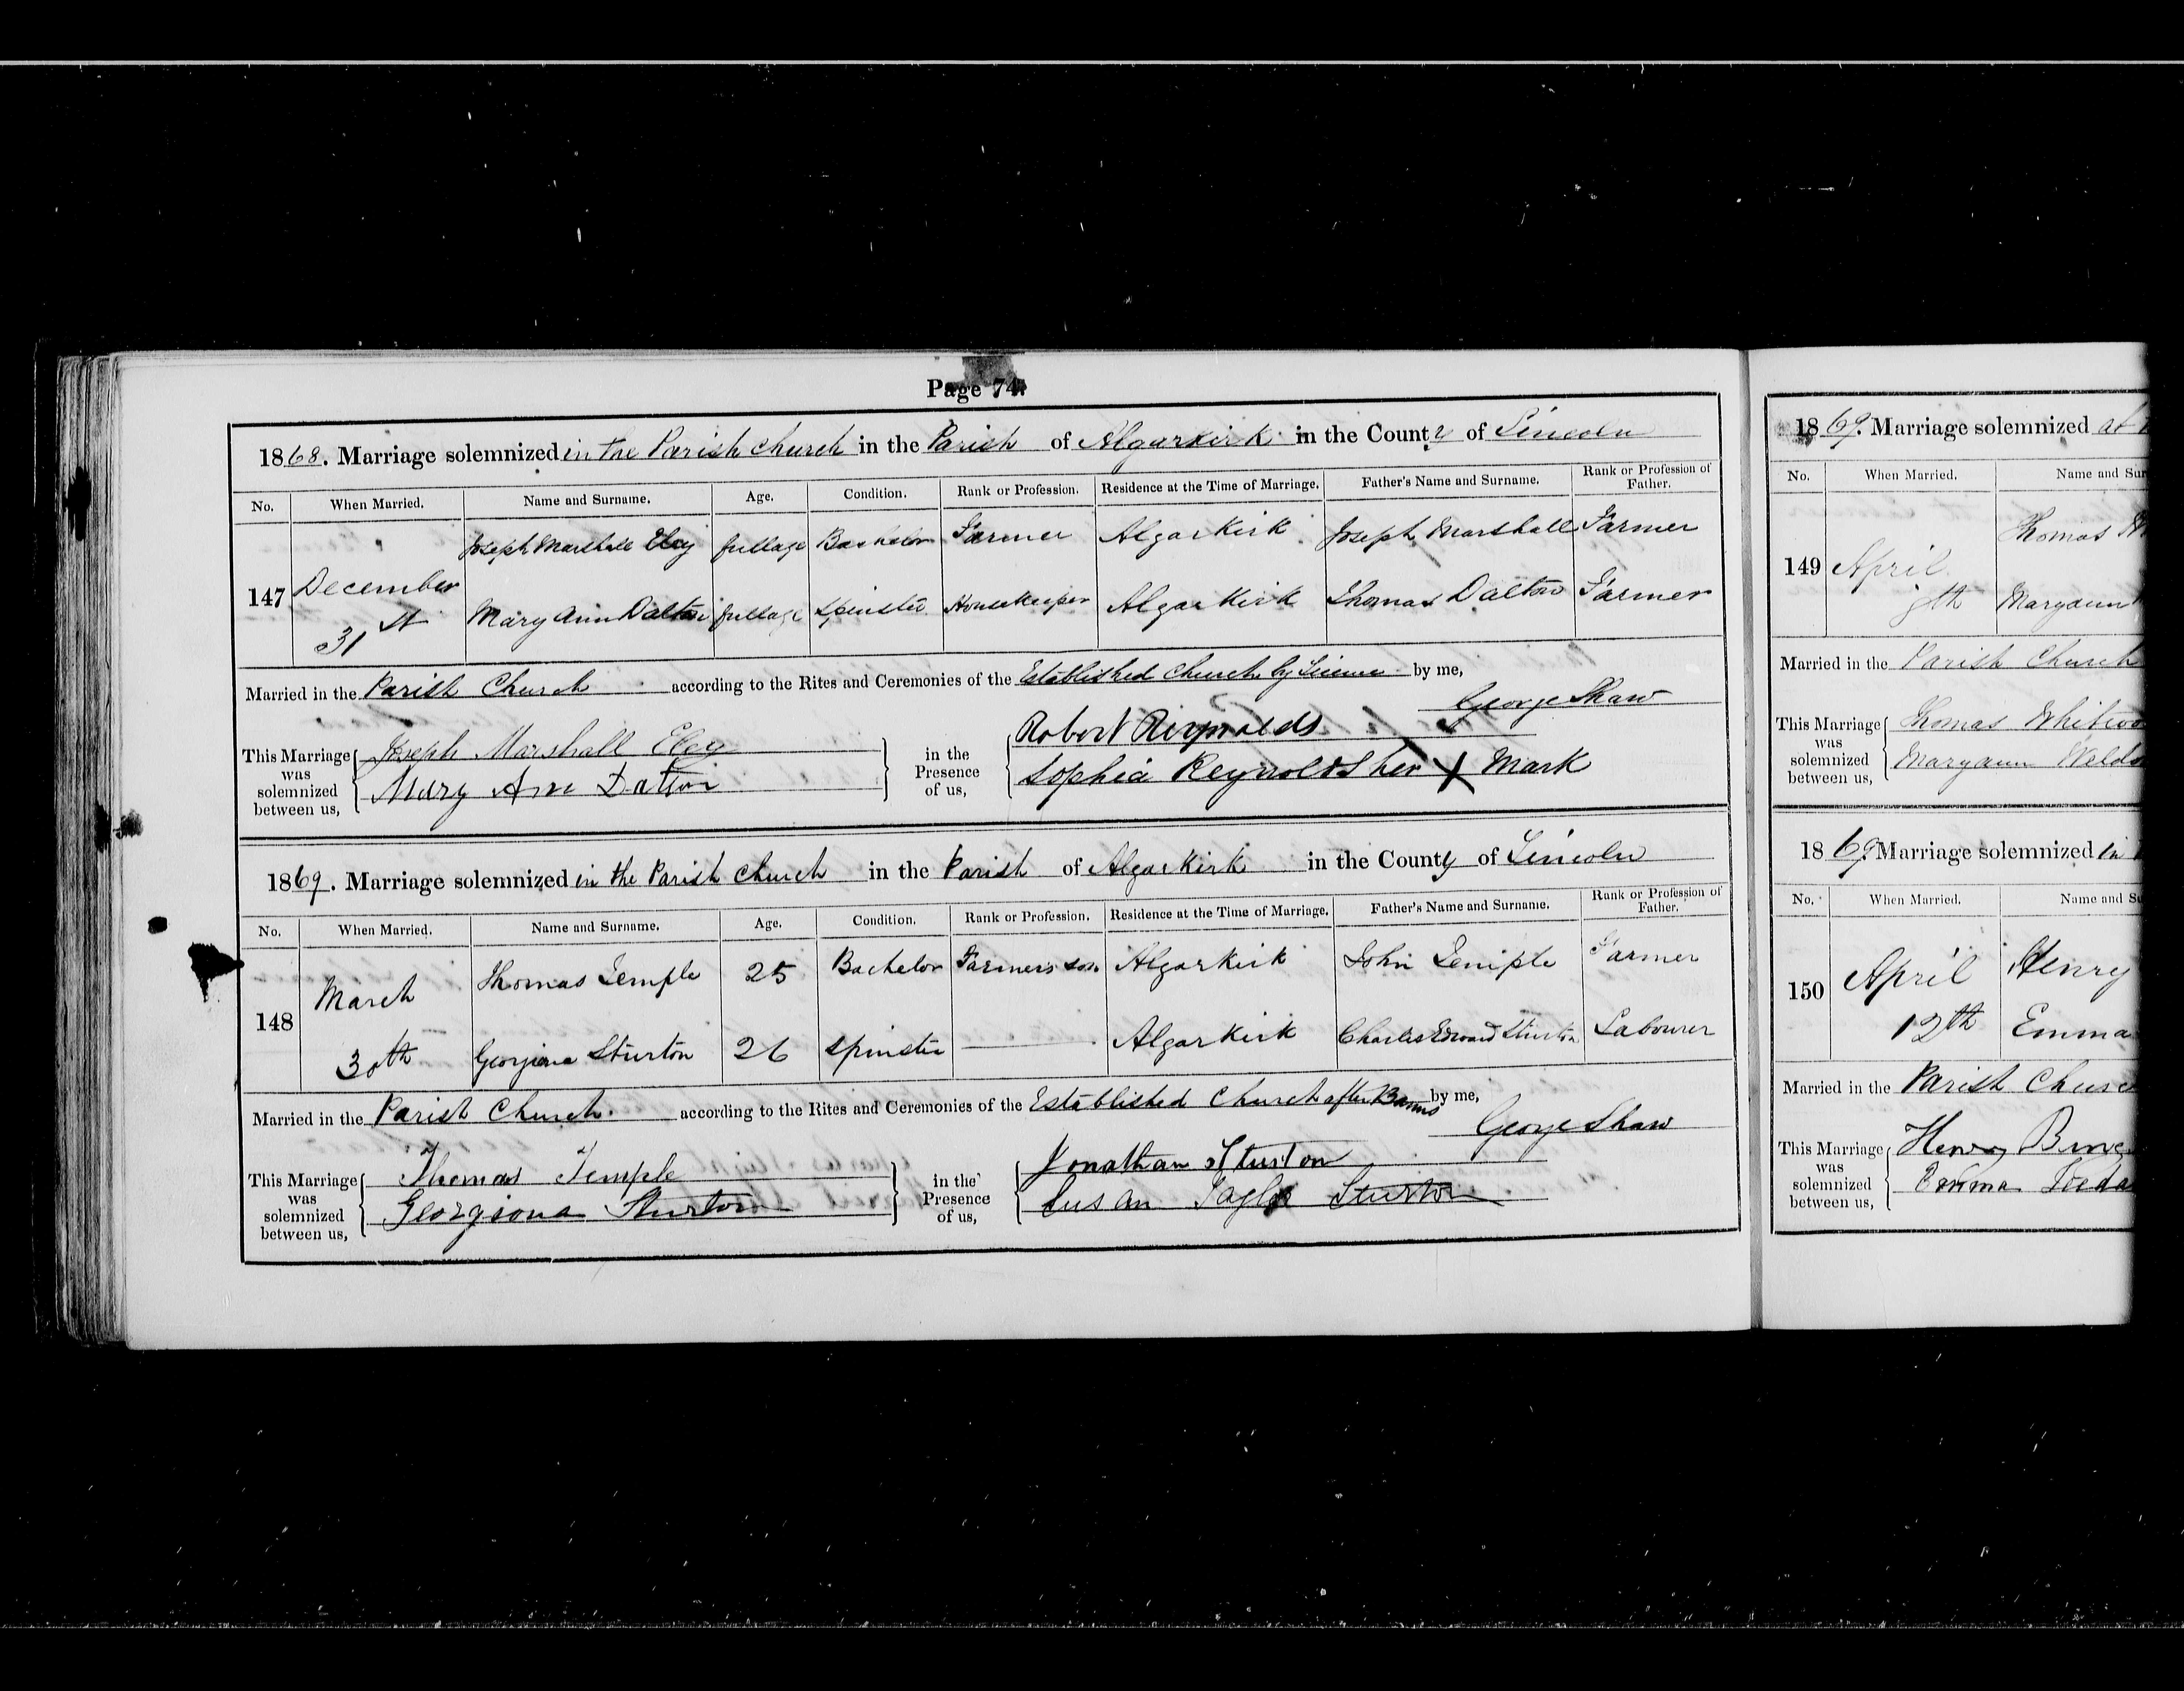 Page 74.
1868. Marriage solemnized in the Parish Church in the Parish of Algarkirk in the County of Lincoln
No. When Married. Name and Surname. Age. Condition. Rank or Profession. Residence at the Time of Marriage. Father's Name and Surname. Rank or Profession of Father.
Joseph Marshall fullage Bachelor Farmer Algarkirk Joseph Marshall Farmer
147 December 31st Mary Ann Dalton fullage Spinster Housekeeper Algarkirk Thomas Dalton Farmer
Married in the Parish Church according to the Rites and Ceremonies of the Established Church by License by me,
George Shaw
This Marriage was solemnized between us,
Joseph Marshall
Mary Ann Dalton
in the Presence of us,
Robert Reynolds
Sophia Reynolds her X Mark
1869. Marriage solemnized in the Parish Church in the Parish of Algarkirk in the County of Lincoln
No. When Married. Name and Surname. Age. Condition. Rank or Profession. Residence at the Time of Marriage. Father's Name and Surname. Rank or Profession of Father.
Thomas Temple 25 Bachelor Farmers son Algarkirk John Temple Farmer
148 March 30th Georgiana Sturton 26 Spinster Algarkirk Charles Edward Sturton Labourer
Married in the Parish Church according to the Rites and Ceremonies of the Established Church after Banns by me,
George Shaw
This Marriage was solemnized between us,
Thomas Temple
Georgiona Sturton
in the Presence of us,
Jonathan Sturton
Susan Taylor Sturton
1869. Marriage solemnized at
No. When Married. Name and Sur
Thomas
149 April
Maryann
Married in the Parish Church
This Marriage was solemnized between us,
Thomas
Maryann
1869 Marriage solemnized in
No. When Married. Name and Su
150 April 12th Henry
Emma
Married in the Parish
This Marriage was solemnized between us,
Henry
Emma